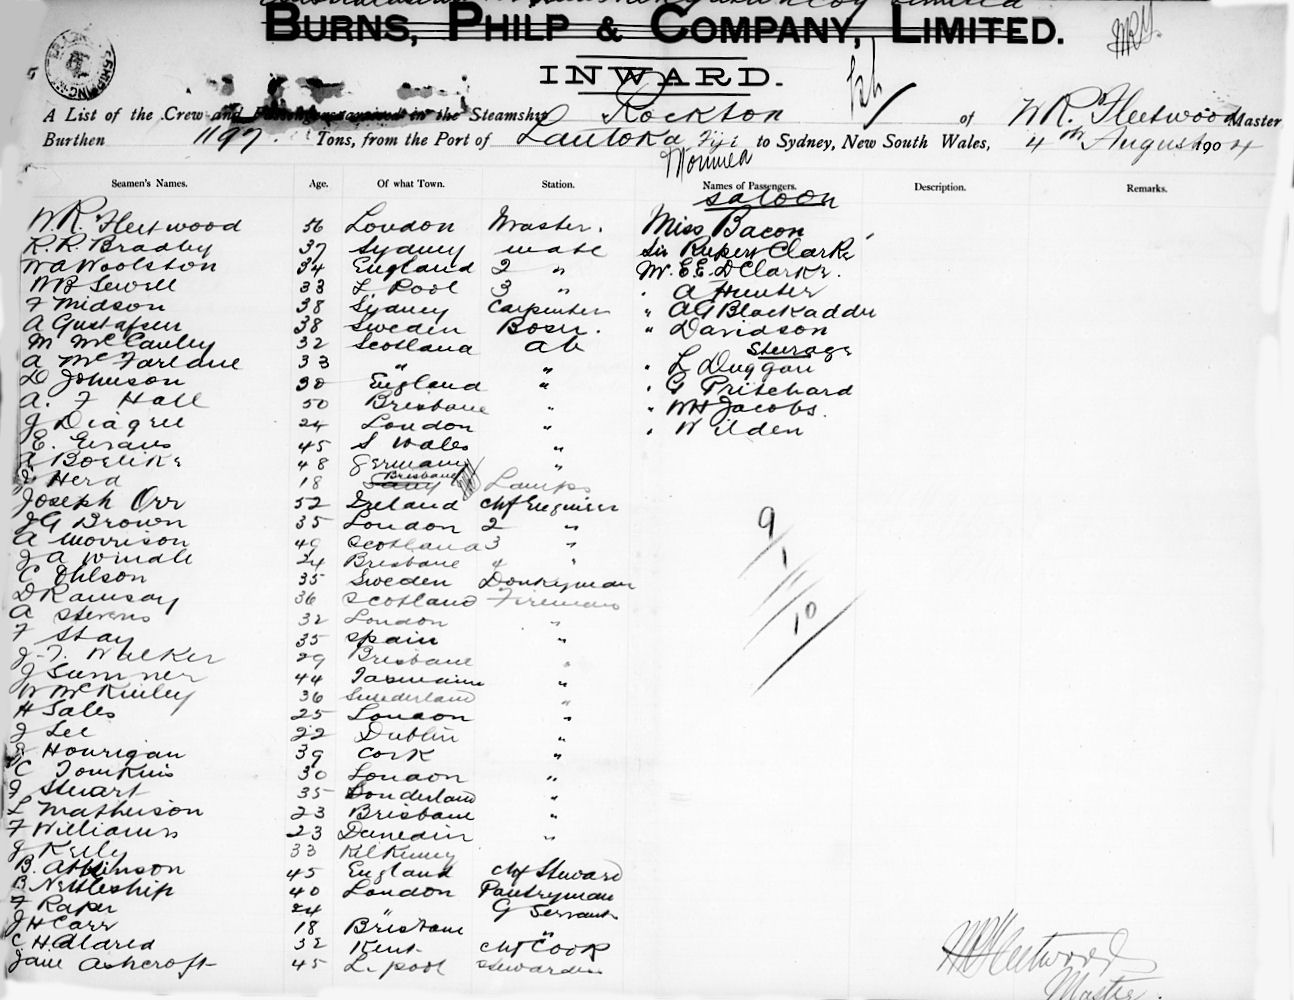 BURNS, PHILP & COMPANY, LIMITED.
INWARD.
A List of the Crew and Passengers arrived in the Steamship Rockton of W R. Fleetwood Master
Burthen 1197. Tons, from the Port of Lautoka Fiji to Sydney, New South Wales, 4th August 1904
Seamen's Names. Age. Of what Town. Station. Names of Passengers. Description. Remarks.
Saloon
W. R. Fleetwood 56 London Master. Miss Bacon
R. R. Bradby 37 Sydney mate Sir Rupert Clarke
W A Woolston 34 England 2 " Mr. E E. D Clarke.
W B Sewell 33 L Pool 3 " " A Hunter
F Midson 38 Sydney Carpenter " A G Blackadder
A Gustafsen 38 Sweden Bosn. " Davidson
M McCauley 32 Scotland ab Steerage
A McFarlane 33 " " " L Duggan
D Johnson 30 England " " G Pritchard
A. F Hall 50 Brisbane " " W H Jacobs.
J Diagree 24 London " " W ilden
E. Evans 45 S Wales "
A Boelike 48 Germany "
Herd 18 Brisbane Lamps
Joseph Orr 52 Ireland chf Engineer
J G Brown 35 London 2 "
A Morrison 49 Scotland 3 "
J A Windle 24 Brisbane 4 "
C Ohlson 35 Sweden Donkeyman
D Ramsay 36 Scotland Firemans
A Stevens 32 London "
F Stay 35 Spain "
J. F. Walker 29 Brisbane "
J Sumner 44 Tasmania "
W McKinley 36 Sunderland "
H Sales 25 London "
J Lee 22 Dublin "
J Hourigan 39 Cork "
C Tomkins 30 London "
J Stuart 35 Sunderland "
L Matheison 23 Brisbane "
F Williams 23 Dunedin "
J Kelly 33 Kilkenny
B. Atkinson 45 England chf Steward
B Nettleship 40 London Pantryman
F Raper 24 " G Servant
J H Carr 18 Brisbane "
C H Aldred 32 Kent chf Cook
Jane Ashcroft 45 L. pool Stewardess
9
1
10
W R Fleetwood
Master.